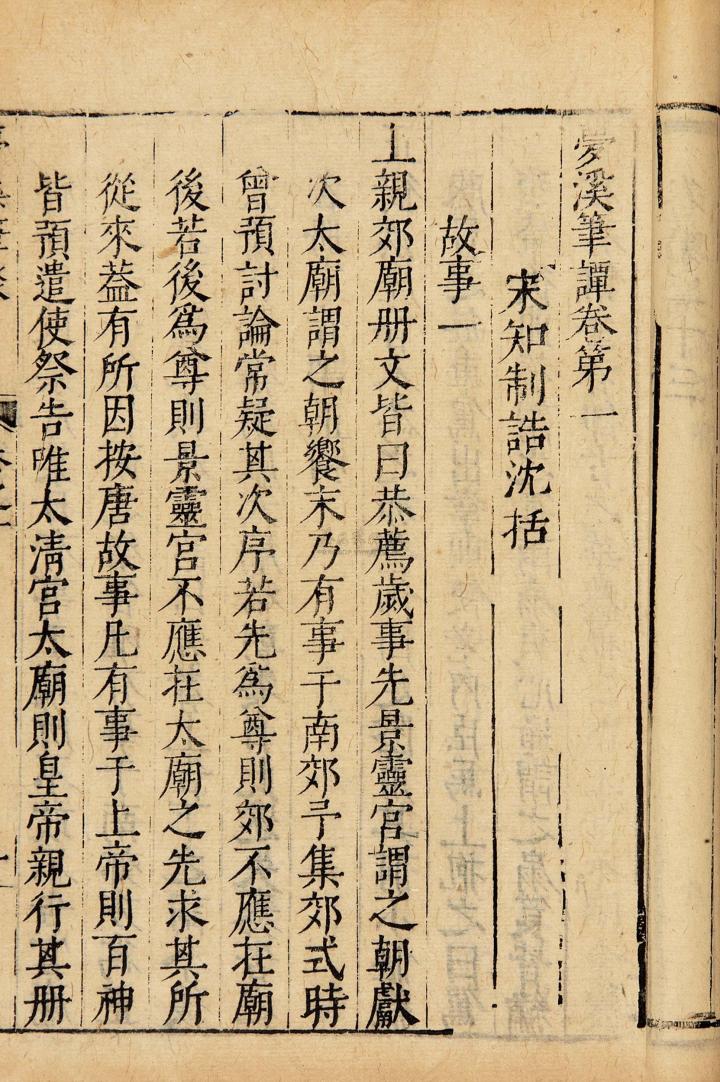 夢溪筆譚卷第一
宋知制誥沈括
故事一
上親郊廟册文皆曰恭薦歲事先景靈宫謂之朝獻
次太廟謂之朝饗末乃有事于南郊予集郊式時
曾預討論常疑其次序若先爲尊則郊不應在廟
後若後爲尊則景靈宫不應在太廟之先求其所
從來葢有所因按唐故事凡有事于上帝則百神
皆預遣使祭告唯太清宫太廟則皇帝親行其册